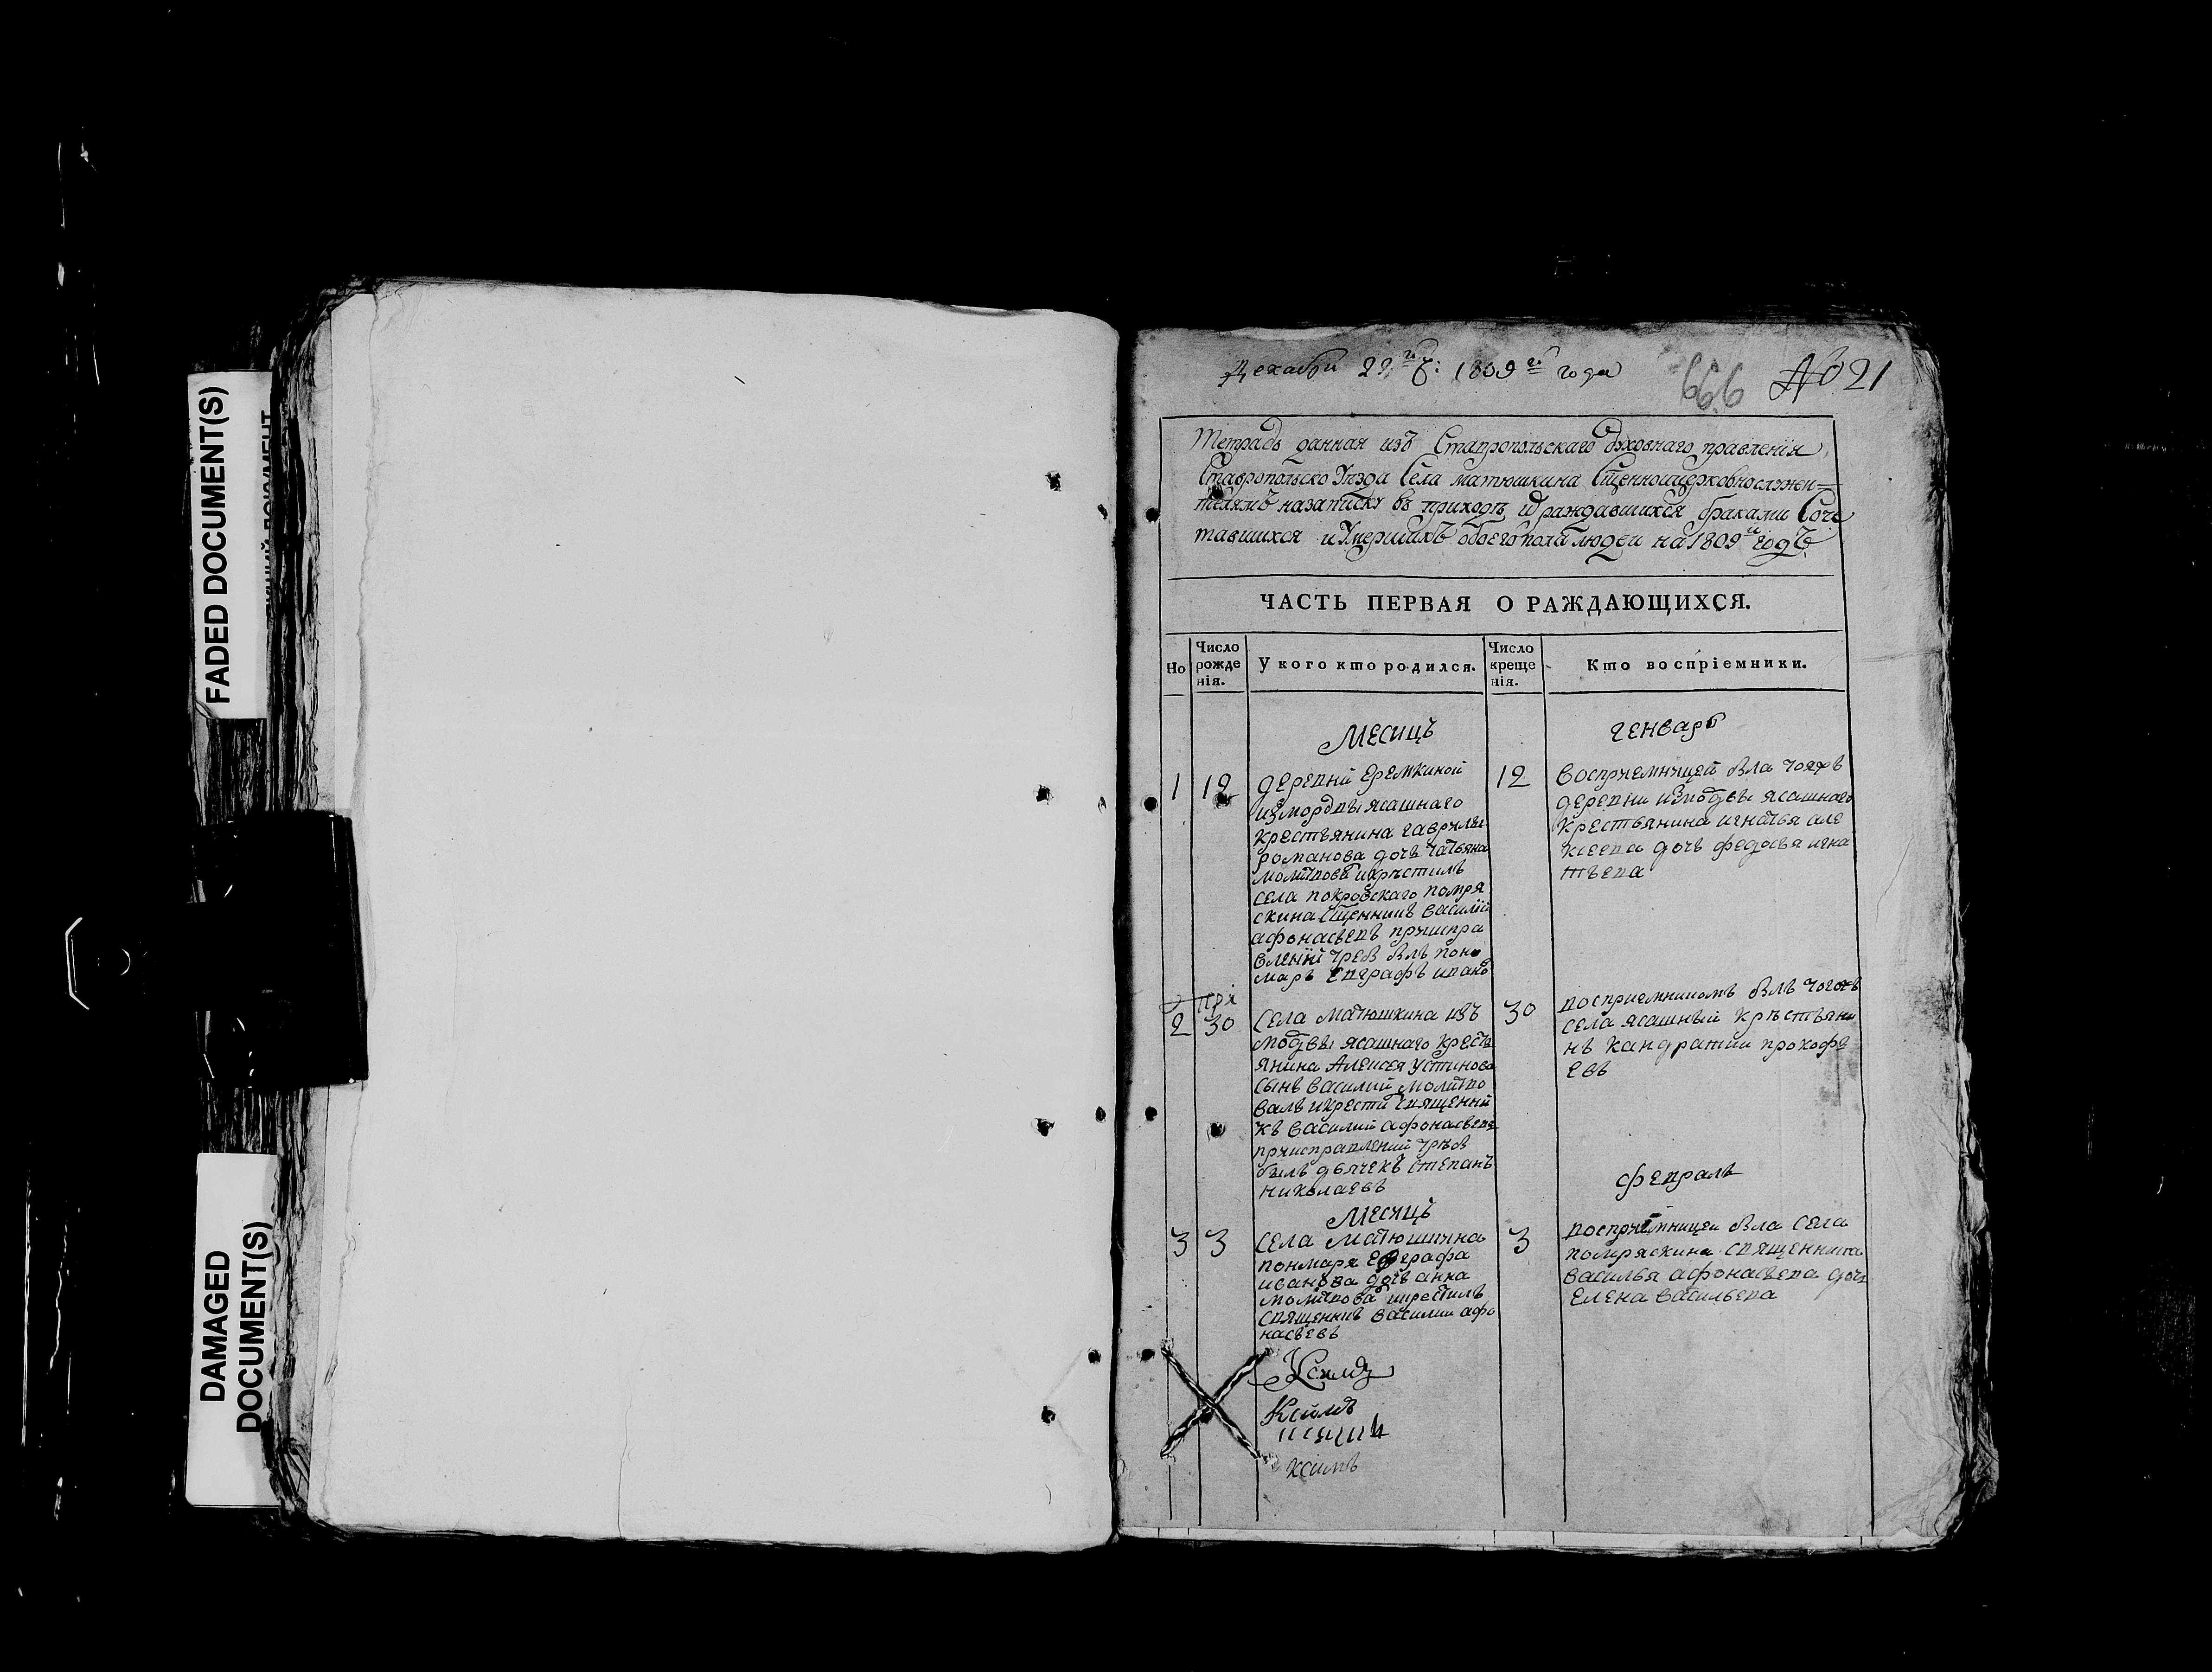 FADED DOCUMENT(S)
DAMAGED
DOCUMENT(S)
Декабря 22 1809 года
666 № 21
Тетрадь данная изъ Ставропольскаго духовнаго правленія
Ставропольско Уезда Села матюшкина Сщенноицерковнослужи=
телямъ на записку въ приходъ раждавшихся браками Соче
тавшихся и Умершихъ обоего пола людеи на 1809 годъ
ЧАСТЬ ПЕРВАЯ О РАЖДАЮЩИХСЯ.
Но
Число рожде нія.
У кого кто родился.
Число креще нія.
Кто воспріемники.
Месицъ
генварь
1 12
деревнй еремкиной
измордвы ясашнаго
крестьянина гаврилы
романова дочь татьяна
молитвовă икрѣстилъ
села покровскаго помря
скина сщенникъ василий
афонасьевъ приисправлениӥ
требъ блъ поно
марь евграфъ ивано
12
восприемницей бла тояжъ
деревни измодвы ясашнаго
крестьянина игнатья але
ксеева дочь федосья игна
тьева
2 30
села матюшкина изъ
модвы ясашнаго кресть
янина Алексея устинова
сынъ василий молитво
валъ икрести священни
къ василий афонасьевъ
приисправлений требъ
былъ дьячекъ степанъ
николаевъ
30
восприемникомъ блъ тогожъ
села ясашный крѣстьяни
нъ кандратии прокофь
евъ
Месицъ
февраль
3 3
села матюшкина
понмаря Евграфа
иванова дочь анна
молитвова икрестилъ
священнкъ василии афо
насьевъ
3
восприемницеи бла села
помряскина священника
василья афонасьева дочь
елена васильева